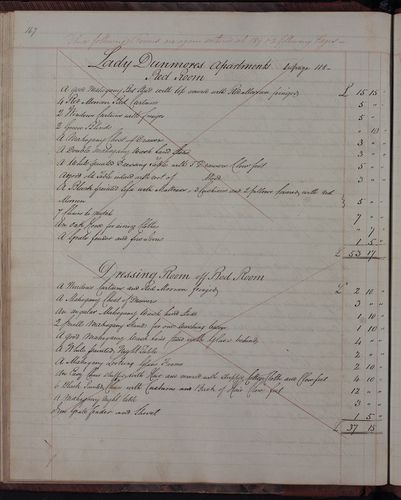 167
This following Rooms are again entered at 189 & 2 following Pages
Lady Dunmores Apartments
Red Room
£ 15 15 "
A good Mahogany Bed with top covered with Red Moreen fringed
4 Red Moreen Bed Curtains 5 " "
2 Window Curtains with fringes 5 " "
2 Green Blinds " 12
A Mahogany Chest of Drawers 3 " "
A Double Mahogany Wash hand Stand 3 " "
A White painted Dressing Table with 5 Drawers Claw feet 5 " "
A good old Table inlaid with
A Black painted Sofa with Mattrass, 2 Cushions and 2 pillows covered with red
Moreen 5 " "
7 Chairs to match 7 " "
An Oak for airing Clothes
A Grate fender and fire Irons 1 5 "
£ 53 17 "
Dressing Room off Red Room
A Window Curtains and Red Moreen fringed £ 2 10 "
A Mahogany Chest of Drawers 3 " "
An angular Mahogany Wash hand Stand 1 10 "
2 Small Mahogany Stands for 1 10
A good Mahogany Wash hand Stand with Glass behind 4 " "
A White painted Night Table 2 " "
A Mahogany Looking Glass Frame 2 10
An Easy Chair Stuffed with Hair and covered with and Claw feet 4 10
6 Black Painted Chairs with Cushions and Back of Hair Claw feet 12 " "
A Mahogany Night Table 3 " "
Iron Grate fender and Shovel 1 5 "
£ 37 15 "